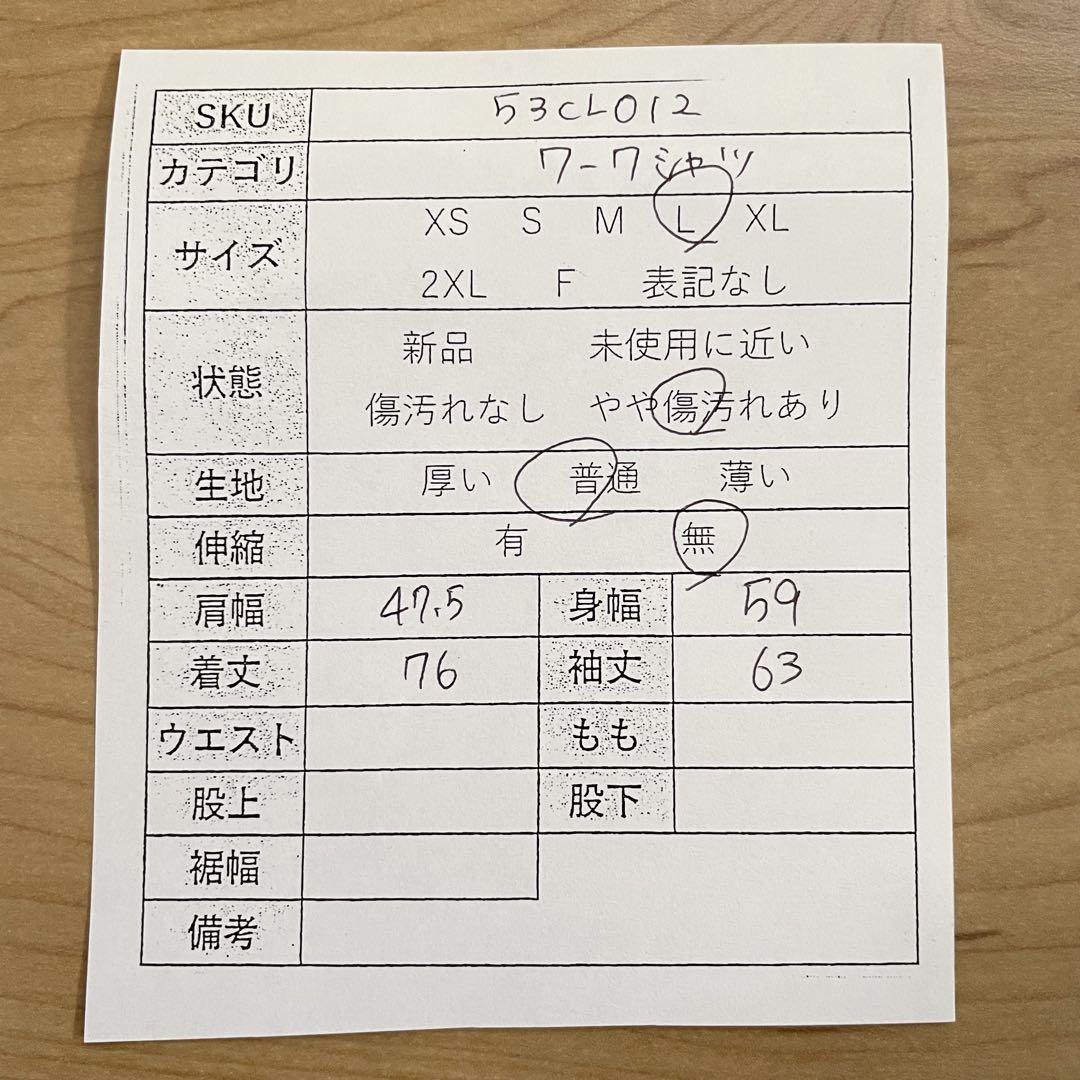 SKU 53CL012
カテゴリ ワークシャツ
サイズ XS S M L XL
2XL F 表記なし
状態 新品 未使用に近い
傷汚れなし やや傷汚れあり
生地 厚い 普通 薄い
伸縮 有 無
肩幅 47.5 身幅 59
着丈 76 袖丈 63
ウエスト もも
股上 股下
裾幅
備考